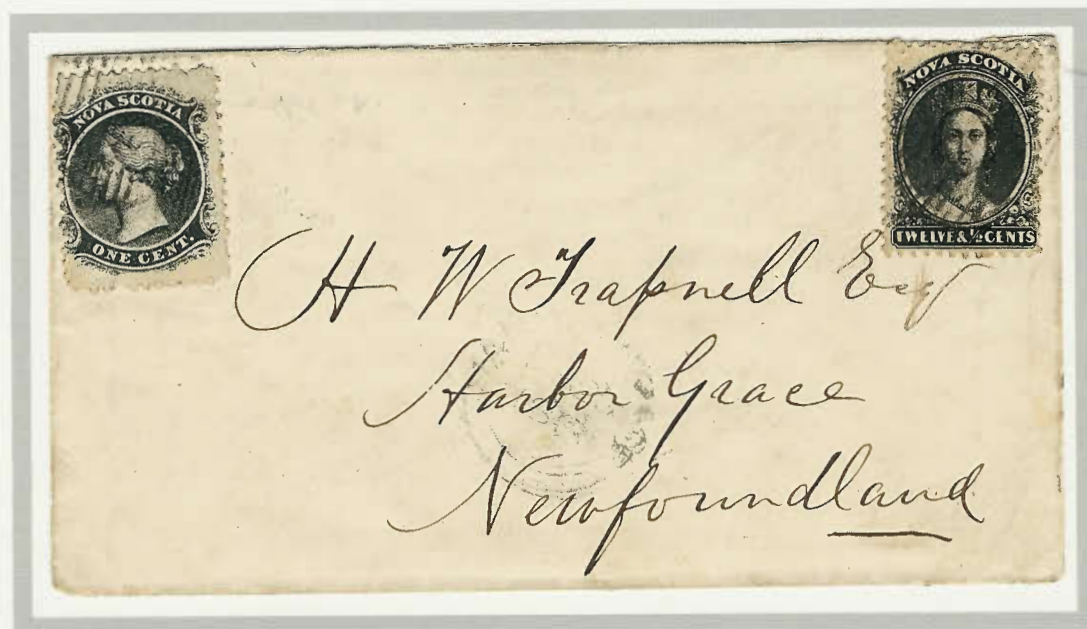 NOVA SCOTIA
ONE CENT.
NOVA SCOTIA
TWELVE & ½ CENTS
H W Trapnell Esq
Harbor Grace
Newfoundland